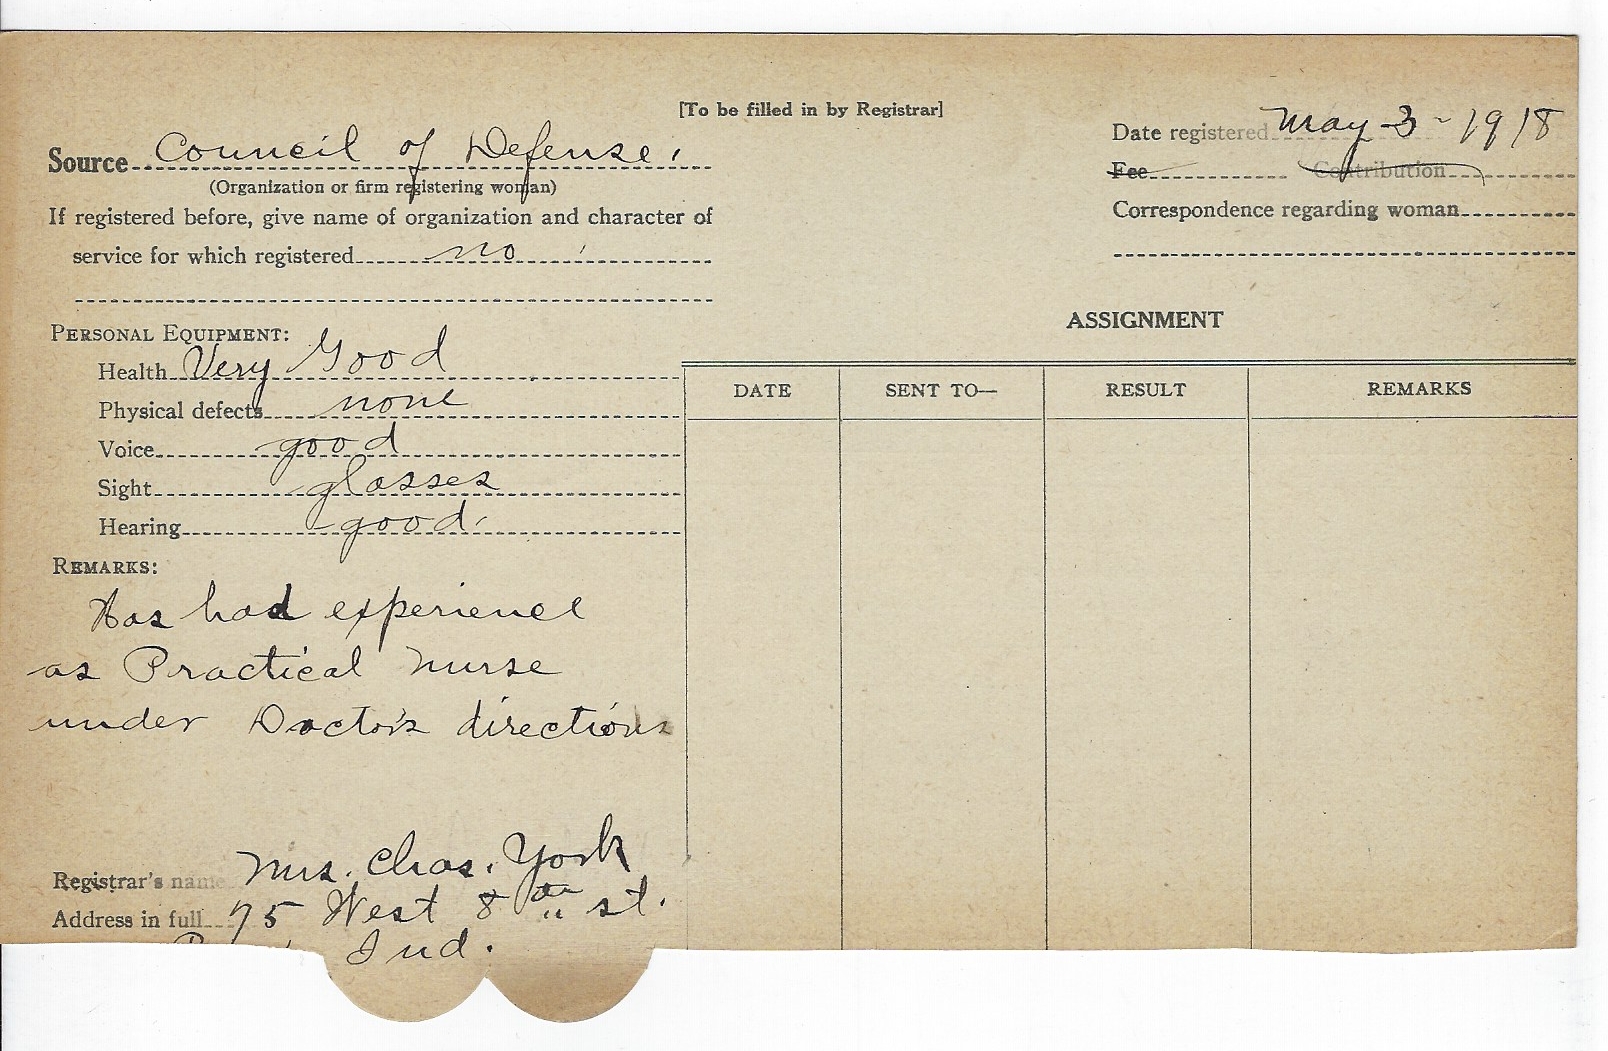 [To be filled in by Registrar]
Source Council of Defense.
(Organization or firm registering woman)
If registered before, give name of organization and character of
service for which registered no
Personal Equipment:
Health Very Good
Physical defects none
Voice good
Sight glasses
Hearing good.
Remarks:
Has had experience
as Practical nurse
under Doctor's directions
Registrar's name Mrs. Chas. York
Address in full 75 West 8th st.
Ind.
Date registered May 3 - 1918
Fee Contribution
Correspondence regarding woman
ASSIGNMENT
DATE SENT TO— RESULT REMARKS